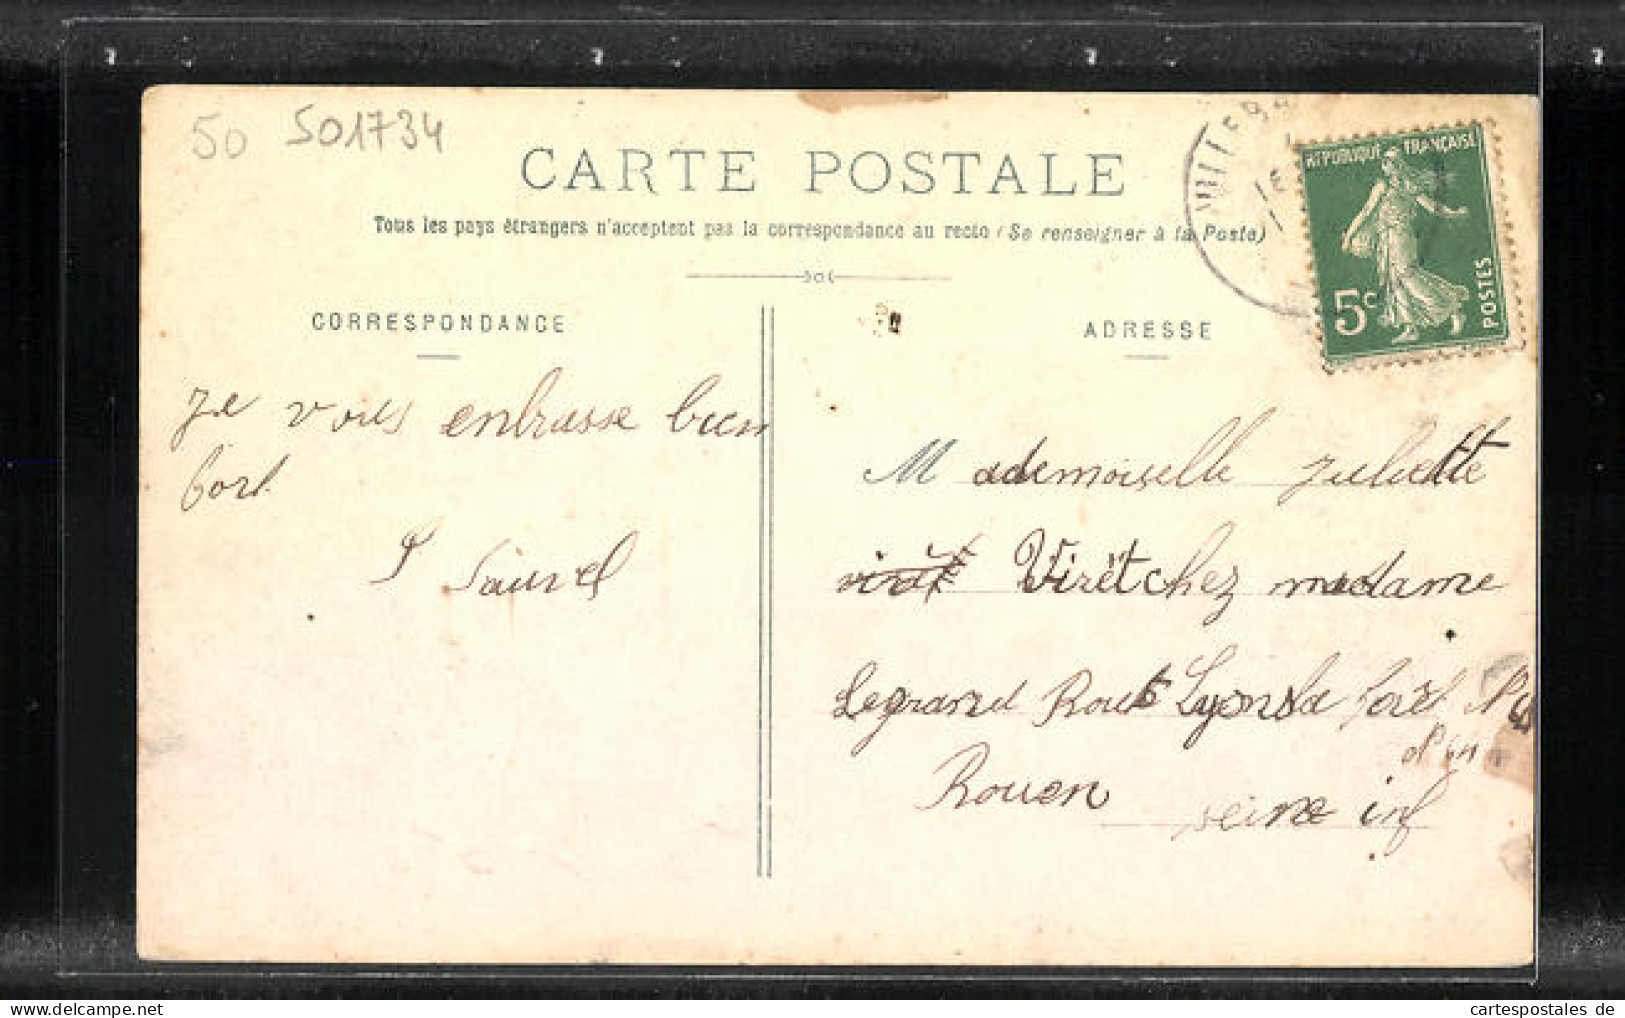 50 501734
CARTE POSTALE
Tous les pays étrangers n'acceptent pas la correspondance au recto (Se renseigner à la Poste)
CORRESPONDANCE
ADRESSE
RÉPUBLIQUE FRANÇAISE
5c
POSTES
Je vous enbrasse bien
fort
Mademoiselle Juliette
Virêt chez madame
Legrand Route Lyons la forêt
Rouen
seine inf
cartespostales de